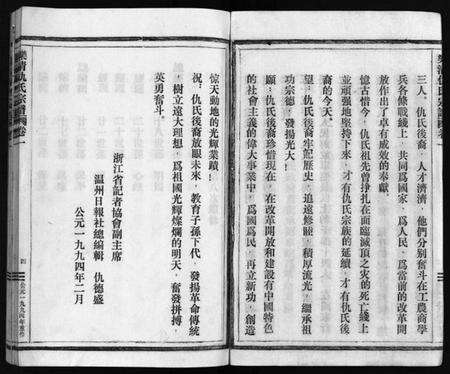 三人。仇氏後裔，人才濟濟，他們分別奮斗在工農商學
兵各條戰綫上，共同爲國家、爲人民、爲當前的改革開
放作出了卓有成效的奉獻。
憶古惜今，仇氏祖先曾掙扎在面臨滅頂之灾的死亡綫上
並頑强地堅持下來，才有仇氏宗族的延續，才有仇氏後
裔的今天。
望：仇氏後裔牢記歷史，追遠修睦，積厚流光，繼承祖
功宗德，發揚光大！
願：仇氏後裔珍惜現在，在改革開放和建設有中國特色
的社會主義的偉大事業中，爲國爲民，再立新功，創造
惊天動地的光輝業績！
祝：仇氏後裔放眼未來，教育子孫下代，發揚革命傳統
，樹立遠大理想，爲祖國光輝燦爛的明天，奮發拼搏，
英勇奮斗。
浙江省記者協會副主席
温州日報社總編輯 仇德盛
公元一九九四年二月
樂清仇氏宗譜卷一
四
公元一九九四年重修